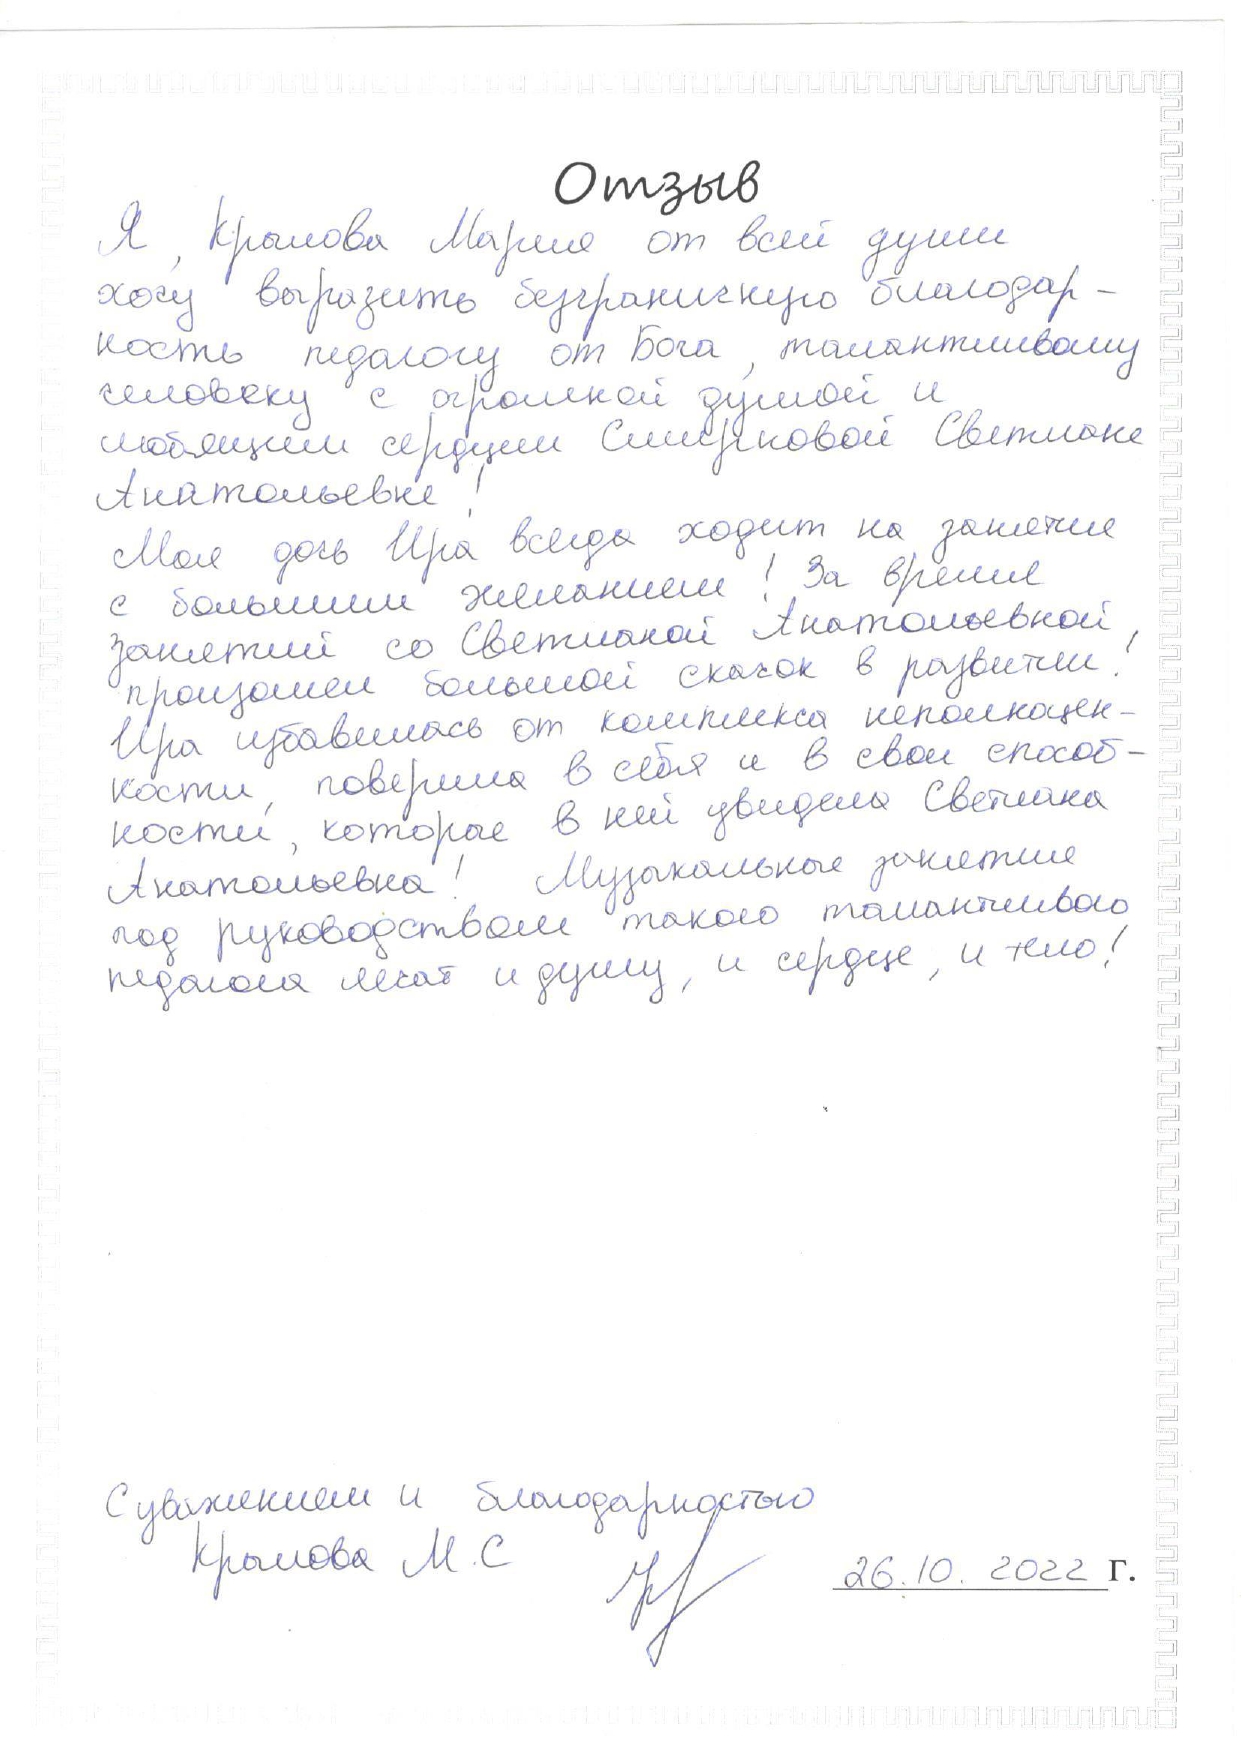 Отзыв
Я, Крылова Мария от всей души
хочу выразить безграничную благодар-
ность педагогу от Бога, талантливому
человеку с огромной душой и
любящим сердцем Смирновой Светлане
Анатольевне!
Моя дочь Ира всегда ходит на занятия
с большим желанием! За время
занятий со Светланой Анатольевной,
произошел большой скачок в развитии!
Ира избавилась от комплекса неполноцен-
ности, поверила в себя и в свои способ-
ности, которые в ней увидела Светлана
Анатольевна! Музыкальные занятия
под руководством такого талантливого
педагога лечат и душу, и сердце, и тело!
С уважением и благодарностью
Крылова М.С
26.10.2022 г.